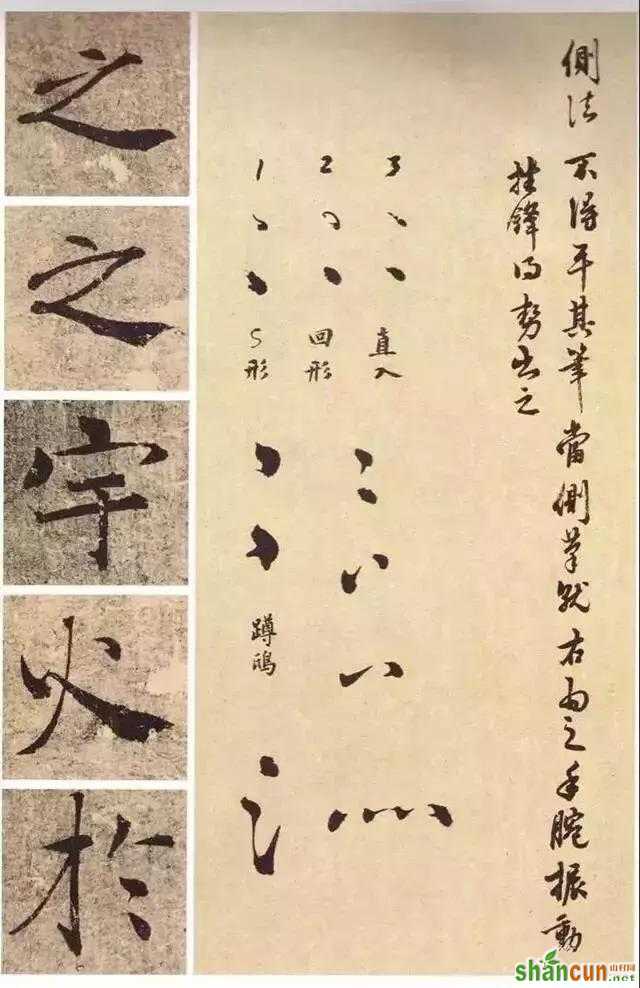 側法 不得平其筆當側筆就右為之手腕振動
挫鋒得勢出之
3
直入
2
回形
1
S形
蹲鴟
之
之
宇
火
於
shancun
山村网
.net